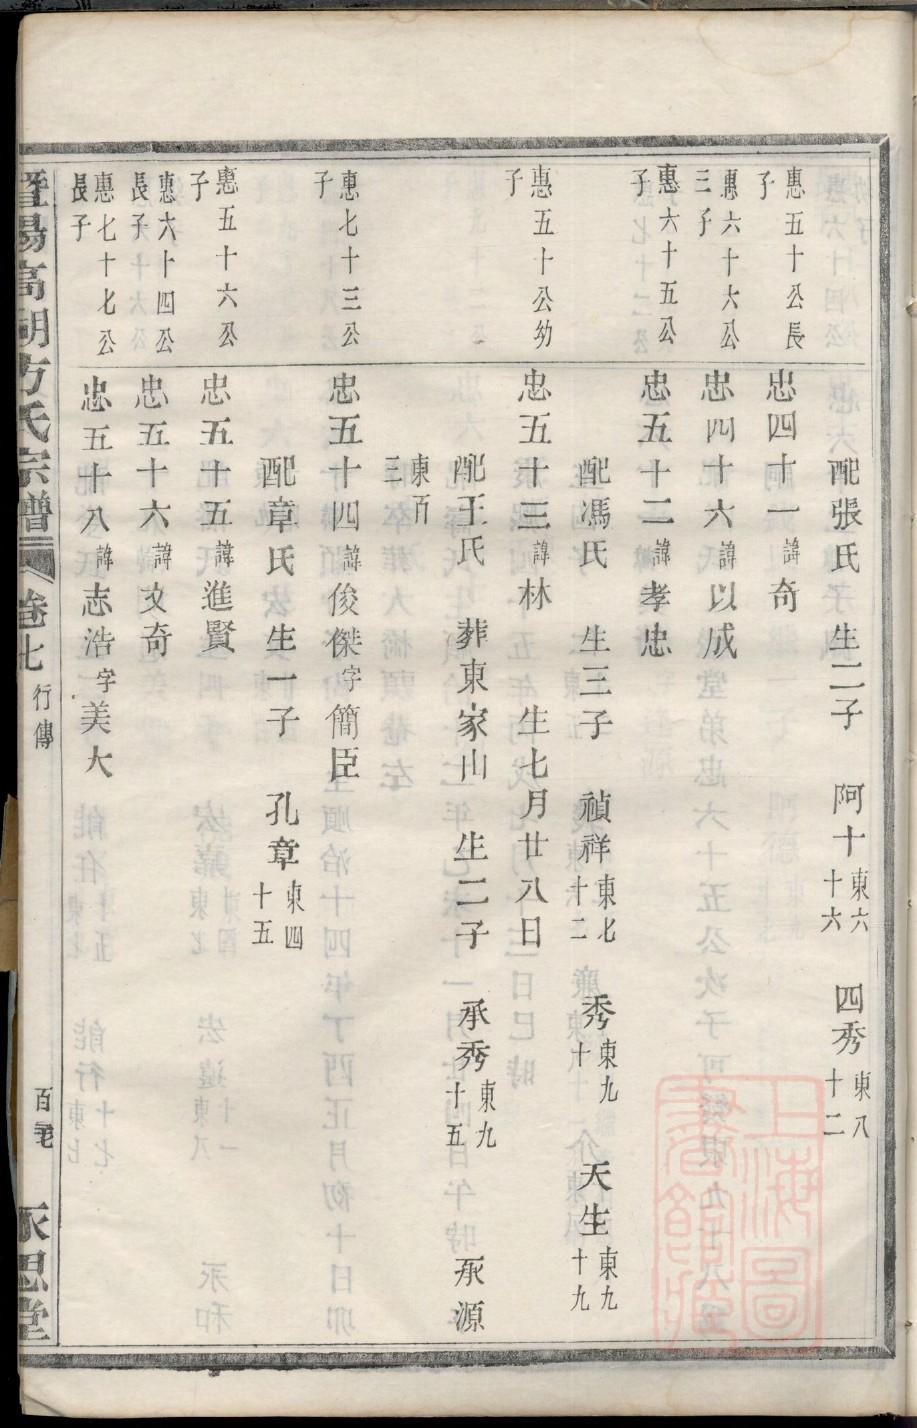 配張氏 生二子 阿十東六十六 四秀東八十二
惠五十公長子
忠四十一諱奇
惠六十六公三子
忠四十六諱以成
惠六十五公子
忠五十二諱孝忠
配馮氏 生三子 禎祥東七十二 秀東九十 天生東九十九
惠五十公幼子
忠五十三諱林 生七月廿八日
配王氏 葬東家山 生二子 承秀東九十五 承源
東百三
惠七十三公子
忠五十四諱俊傑字簡臣
配章氏 生一子 孔章東四十五
惠五十六公子
忠五十五諱進賢
惠六十四公長子
忠五十六諱文奇
惠七十七公長子
忠五十八諱志浩字美大
暨陽高湖方氏宗譜 卷七 行傳 永思堂
上海圖書館藏